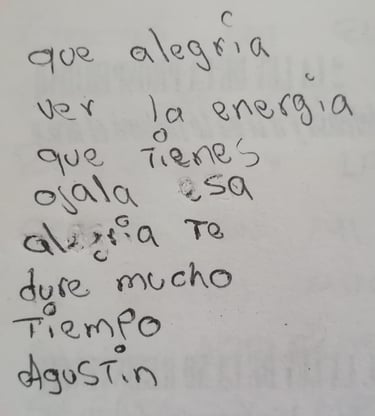 que alegria
ver la energia
que tienes
ojala esa
alegria te
dure mucho
Tiempo
Agustin